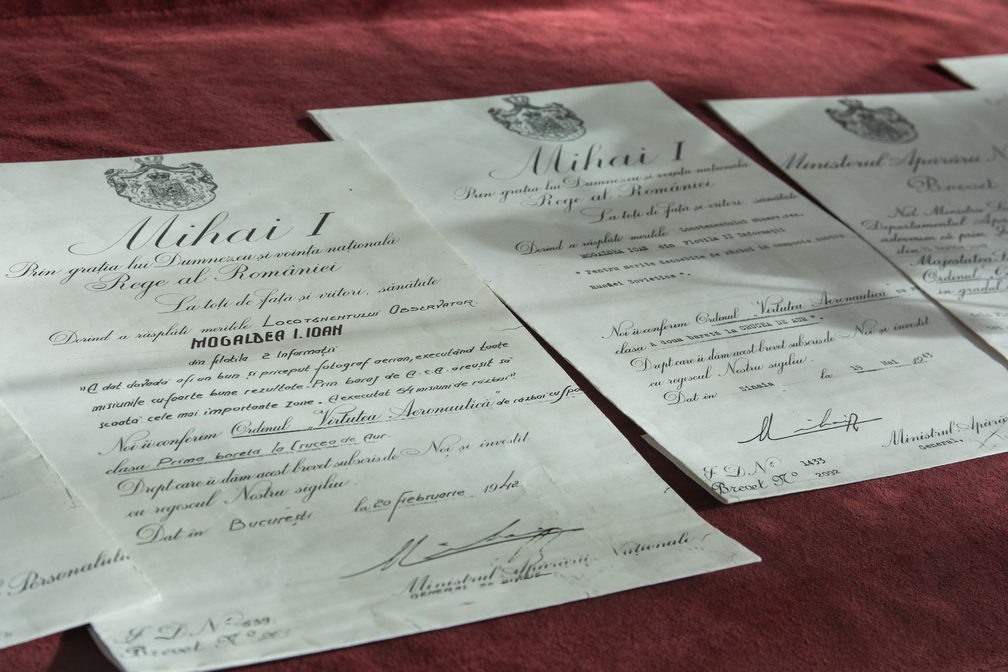 Mihai I
Prin grația lui Dumnezeu și voința națională
Rege al României
La toți de față și viitori, sănătate
Dorind a răsplăti meritele Locotenentului Observator.
MOGALDEA I. IOAN
din flotila 2 Informații
"A dat dovada a fi un bun și priceput fotograf aerian, executând toate
misiunile cu foarte bune rezultate. Prin baraj de A.c.A. a reușit să
scoată cele mai importante zone. A executat 54 misiuni de războiu".
Noi îi conferim Ordinul „Virtutea Aeronautică" de razboi cu spa
clasa Prima bareta la Crucea de Aur.
Drept care îi dăm acest brevet subscris de Noi și investit
cu regescul Nostru sigiliu.
Dat în București la 20 februarie 1942
Ministrul Apărării Naționale
GENERAL
F. D. Nº 639.
Brevet Nº
Personalului
Mihai I
Prin grația lui Dumnezeu și voința națională
Rege al României
La toți de față și viitori, sănătate
Dorind a răsplăti meritele Locotenentului observator,
MOGALDEA IOAN din Flotila II Informații
" Pentru merite deosebite de răsboi în campania contra
Rusiei Sovietice ".
Noi îi conferim Ordinul „Virtutea Aeronautică" cu
clasa A doua baretă la CRUCEA DE AUR ".
Drept care îi dăm acest brevet subscris de Noi și investit
cu regescul Nostru sigiliu.
Dat în Sinaia la 19 Mai 1943
Ministrul Apărăr
General,
F. D. Nº 1433
Brevet Nº 2092
Ministerul Apărării N
Brevet
Noi Ministru
Departamentul Apăr
adeverim că prin
den
Majestatea
Ordinul
în gradul